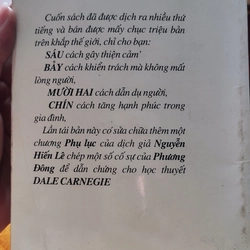 Cuốn sách đã được dịch ra nhiều thứ
tiếng và bán được mấy chục triệu bản
trên khắp thế giới, chỉ cho bạn:
SÁU cách gây thiện cảm
BẢY cách khiển trách mà không mất
lòng người,
MƯỜI HAI cách dẫn dụ người,
CHÍN cách tăng hạnh phúc trong
gia đình,
Lần tái bản này có sửa chữa thêm một
chương Phụ lục của dịch giả Nguyễn
Hiến Lê chép một số cố sự của Phương
Đông để dẫn chứng cho học thuyết
DALE CARNEGIE